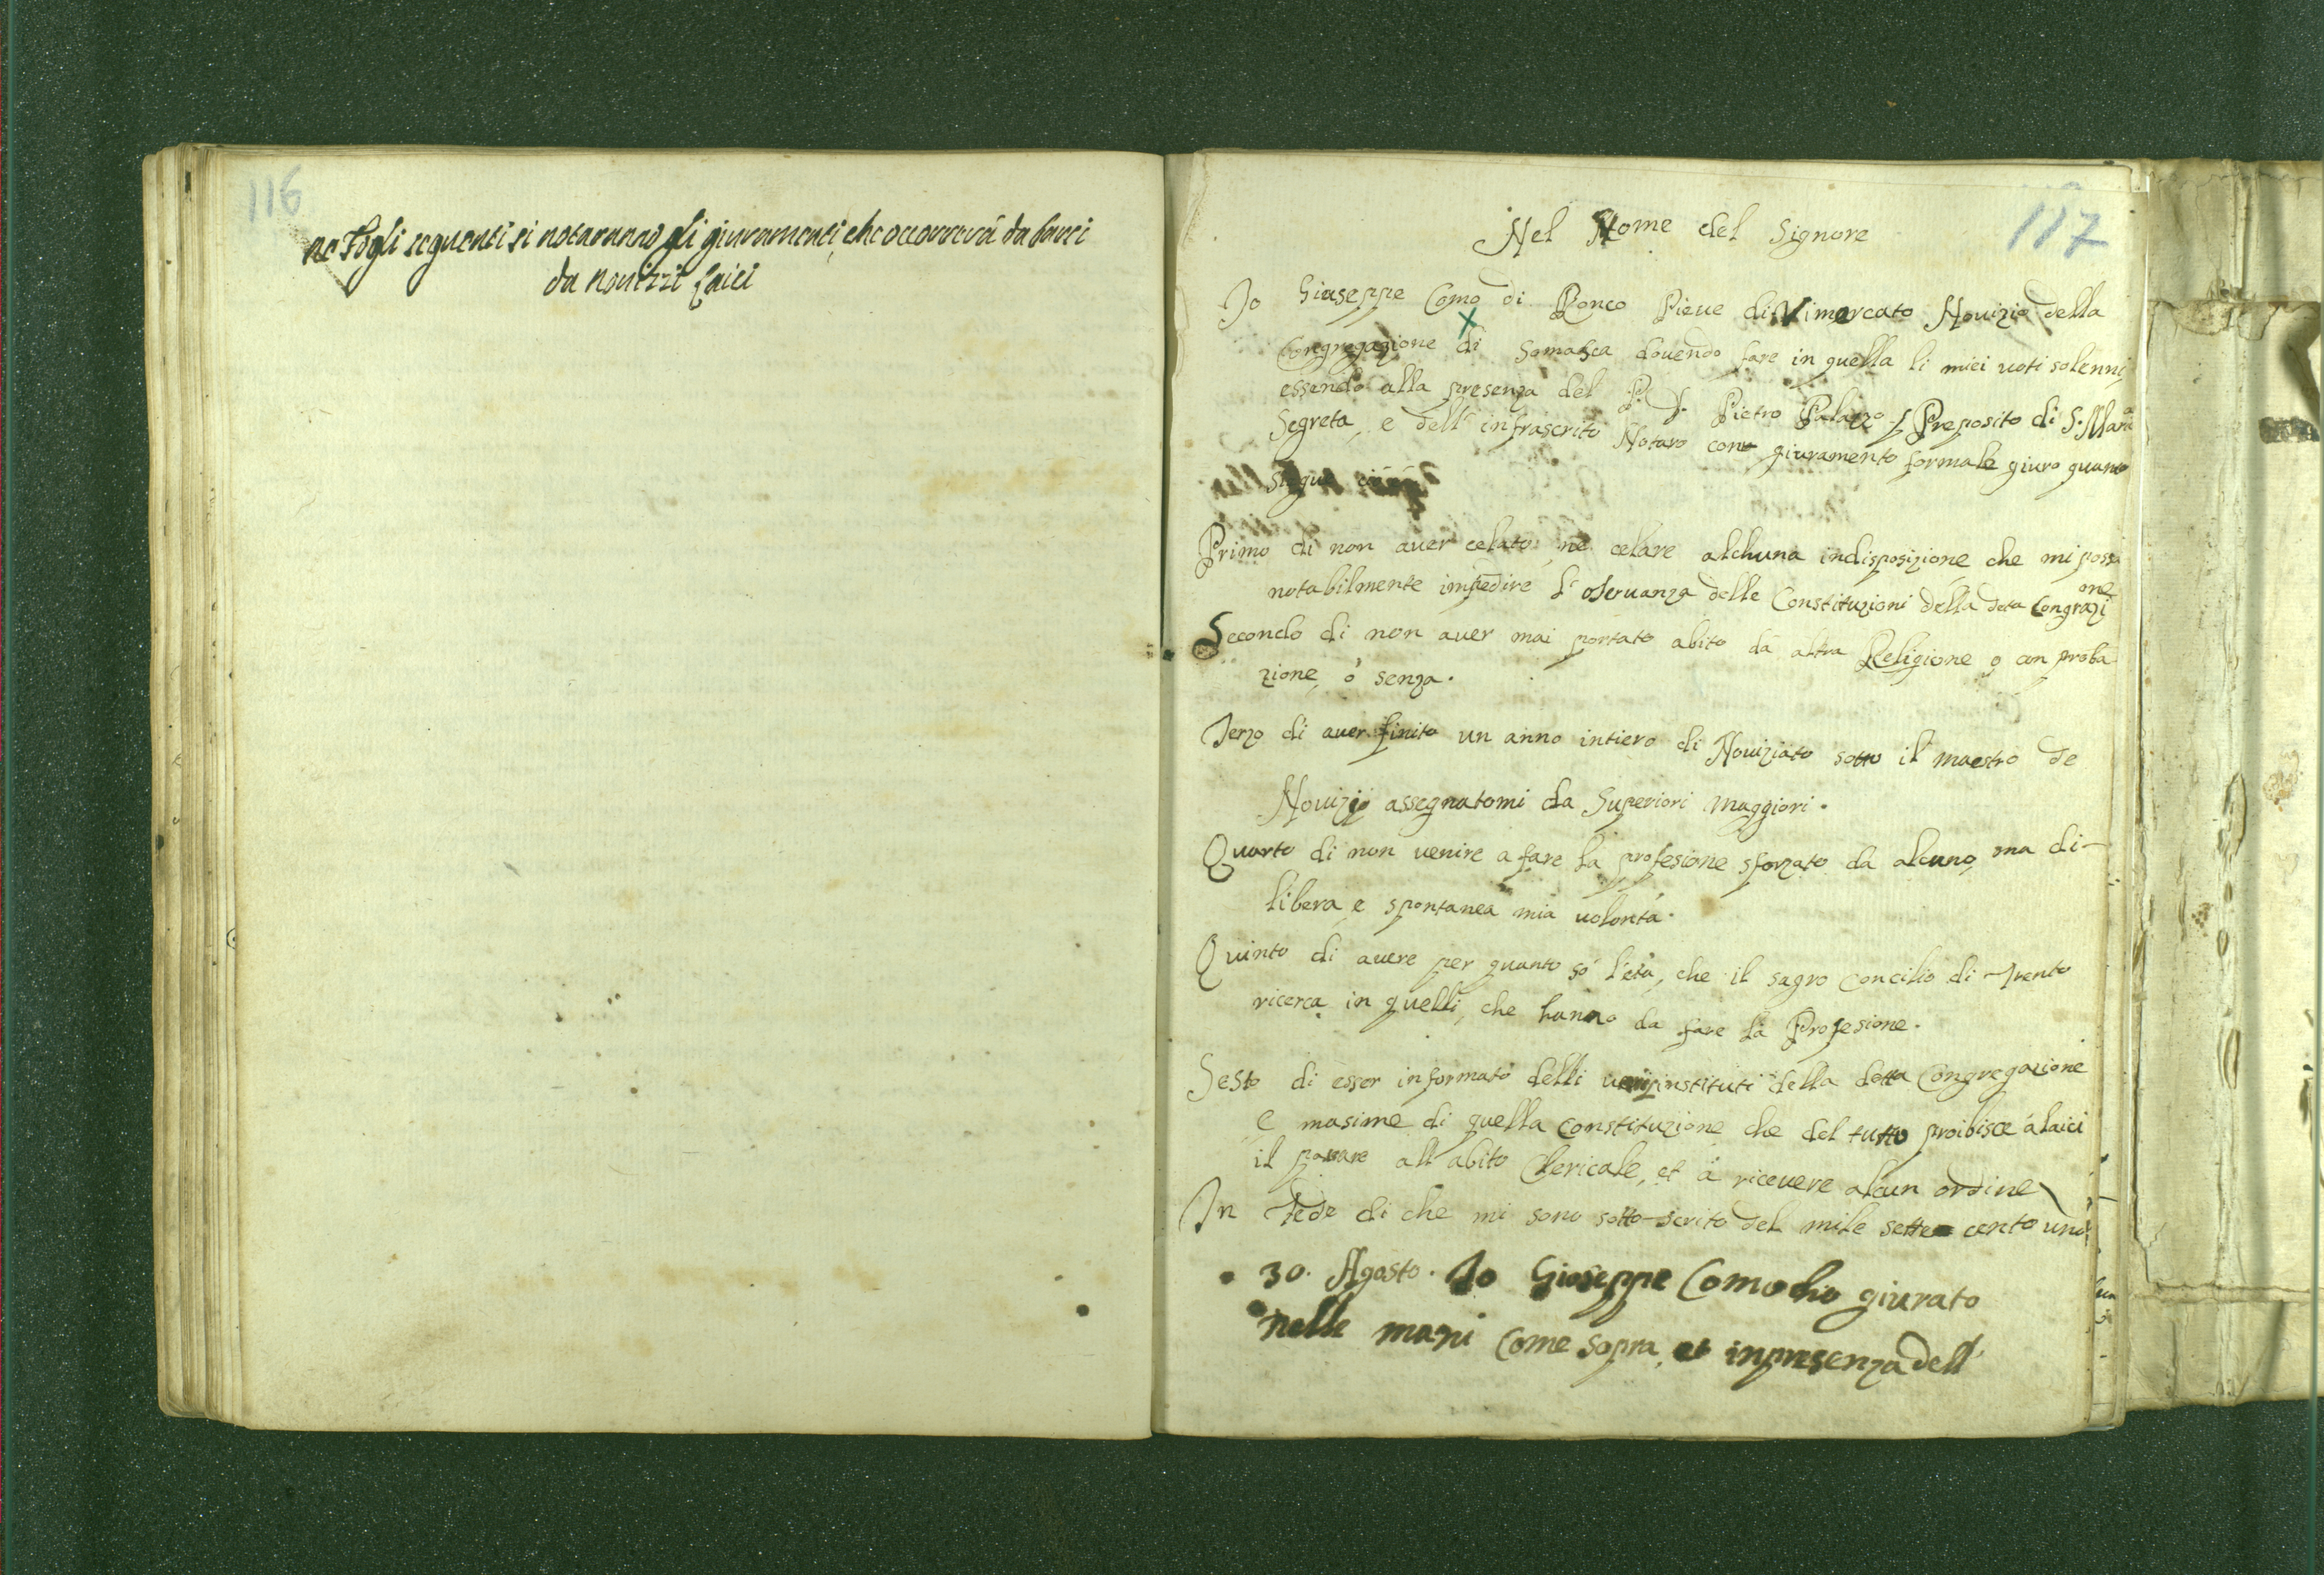 116
ne Fogli seguenti si notaranno gli giuramenti, che occorrerà da farsi
da Novizzi Laici
117
Nel Nome del Signore
Io Giuseppe Como di Ronco Pieve di Vimercato Novizio della
Congregazione di Somasca dovendo fare in quella li miei voti solenni,
essendo alla presenza del P. D. Pietro Palazzo Preposito di S. Maria
Segreta, e dell' infrascrito Notaro con giuramento formale giuro quanto
segue
Primo di non aver celato, nè celare alchuna indisposizione che mi possa
notabilmente impedire l' oservanza delle Constituzioni della deta Congrazione
Secondo di non aver mai portato abito da altra Religione o con proba
zione, ò senza.
Terzo di aver finito un anno intiero di Noviziato sotto il maestro de
Novizij assegnatomi da Superiori Maggiori.
Quarto di non venire a fare la profesione sforzato da alcuno, ma di
libera e spontanea mia volontà.
Quinto di avere per quanto sò l'età, che il sagro Concilio di Trento
ricerca in quelli, che hanno da fare la Profesione.
Sesto di esser informato delli instituti della detta Congregazione
e masime di quella Constituzione che del tutto proibisce à laici
il passare all' abito Clericale, et à ricevere alcun ordine
In Fede di che mi sono sotto-scrito del mile sette cento uno
30. Agosto. Io Giuseppe Como ho giurato
nelle mani come sopra, et in presenza dell'